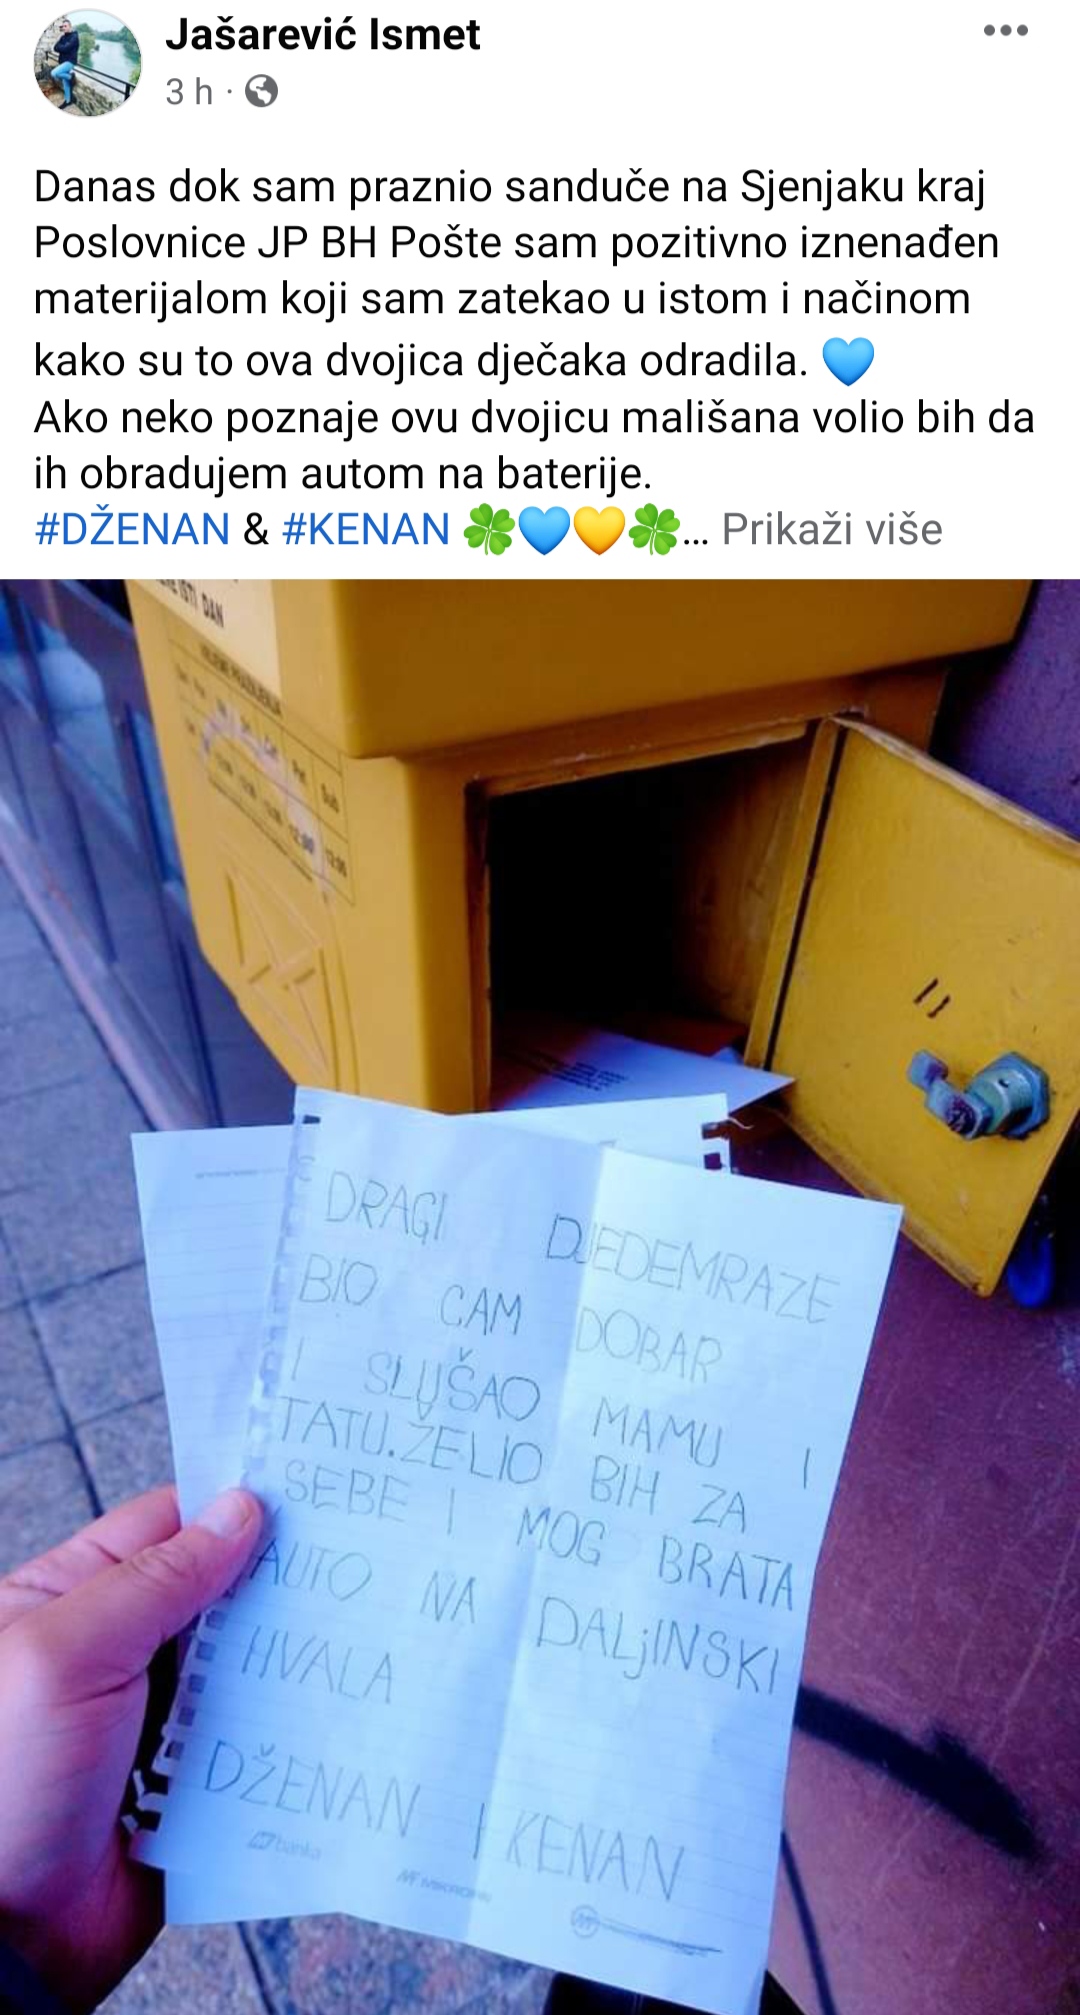 Jašarević Ismet
3 h ·
Danas dok sam praznio sanduče na Sjenjaku kraj
Poslovnice JP BH Pošte sam pozitivno iznenađen
materijalom koji sam zatekao u istom i načinom
kako su to ova dvojica dječaka odradila. 💙
Ako neko poznaje ovu dvojicu mališana volio bih da
ih obradujem autom na baterije.
#DŽENAN & #KENAN 🍀💙💛🍀... Prikaži više
ISTI DAN
Sub
DRAGI DJEDEMRAZE
BIO CAM DOBAR
I SLUŠAO MAMU I
TATU.ŽELIO BIH ZA
SEBE I MOG BRATA
AUTO NA DALjINSKI
HVALA
DŽENAN I KENAN
banka